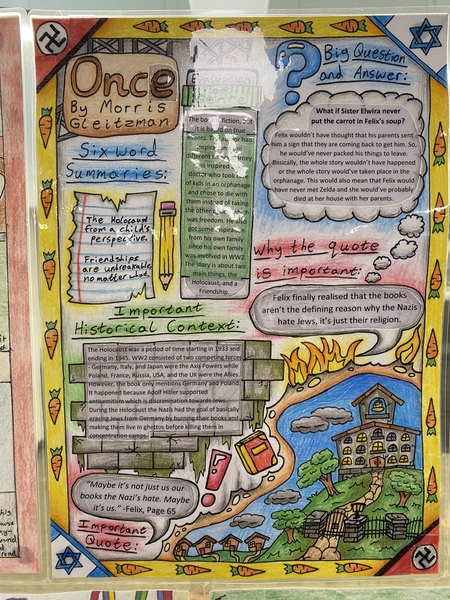 Once
By Morris
Gleitzman
Six Word
Summaries:
The Holocaust
from a child's
perspective.
Friendships
are unbreakable
no matter what.
fiction, but
it is based on true
doctor who took
of kids in an orphanage
and chose to die with
them instead of taking
the other
was freedom. He also
got some inspiration
from his own family
since his own family
was involved in WW2
The story is about two
main things, the
Holocaust, and a
Friendship.
Big Question
and Answer:
What if Sister Elwira never
put the carrot in Felix's soup?
Felix wouldn't have thought that his parents sent
him a sign that they are coming back to get him. So,
he would've never packed his things to leave.
Basically, the whole story wouldn't have happened
or the whole story would've taken place in the
orphanage. This would also mean that Felix would
have never met Zelda and she would've probably
died at her house with her parents.
Why the quote
is important:
Felix finally realised that the books
aren't the defining reason why the Nazis
hate Jews, it's just their religion.
Important
Historical Context:
The Holocaust was a period of time starting in 1933 and
ending in 1945. WW2 consisted of two competing forces
Germany, Italy, and Japan were the Axis Powers while
Poland, France, Russia, USA, and the UK were the Allies.
However, the book only mentions Germany and Poland.
It happened because Adolf Hitler supported
antisemitism which is discrimination towards Jews.
During the Holocaust the Nazis had the goal of basically
erasing Jews from Germany by burning their books and
making them live in ghettos before killing them in
concentration camps.
"Maybe it's not just us our
books the Nazi's hate. Maybe
it's us." -Felix, Page 65
Important
Quote: